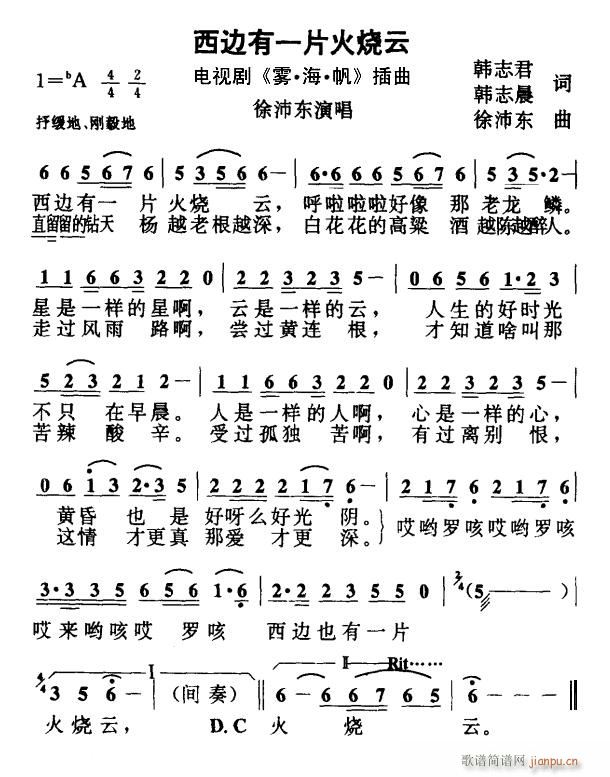 西边有一片火烧云
1=ᵇA 4/4 2/4
电视剧《雾·海·帆》插曲
韩志君
韩志晨 词
徐沛东 曲
徐沛东演唱
抒缓地、刚毅地
6 6 5 6 7 6 | 5 3 5 6 - | 6·6 6 6 5 6 7 6 | 5 3 5·2 - |
西边有一 片火烧 云， 呼啦啦啦好像 那 老龙 鳞。
直留留的钻天 杨 越老根越深， 白花花的高粱 酒 越陈越醉人。
1 1 6 6 3 2 2 0 | 2 2 3 2 3 5 - | 0 5 2 5 6 1·2 3 |
星是一样的星啊， 云是一样的云， 人生的好时光
走过风雨 路啊， 尝过黄连 根， 才知道啥叫那
5 2 3 2 1 2 - | 1 1 6 6 3 2 2 0 | 2 2 3 2 3 5 - |
不只 在早晨。 人是一样的人啊， 心是一样的心，
苦辣 酸 辛。 受过孤独 苦啊， 有过离别 恨，
0 6 1 3 2·3 5 | 1 6 5 3 2 2·3 6 | 2 1 7 6 2 1 7 6 |
黄昏 也 是 好呀么好光 阴。 哎哟罗咳哎哟罗咳
这情 才更真 那爱 才更 深。
3·3 3 5 6 5 6 1·6 | 2·2 2 3 5 0 | 2/4 (5 - ) |
哎来哟咳哎 罗咳 西边也有一片
I II Rit……
4/4 3 5 6 - | (间奏) | 6 - 6 6 7 6 5 | 6 - - - ‖
火烧云， D.C 火 烧 云。
歌谱简谱网
jianpu.cn